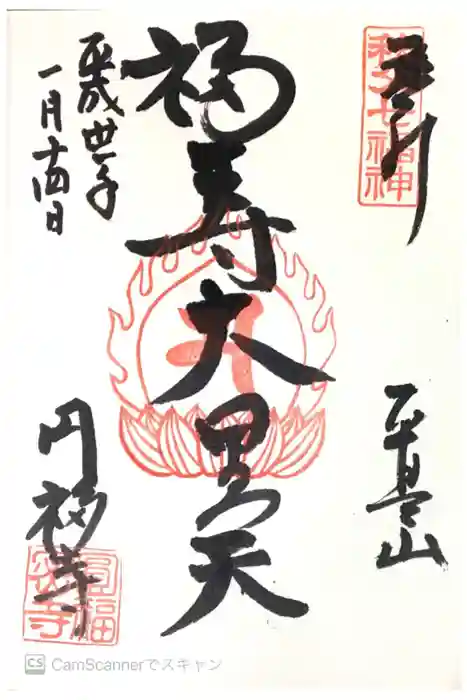 奉拝
秩父七福神
福寿大黒天
平成卅一年
一月十四日
円福寺
CamScannerでスキャン